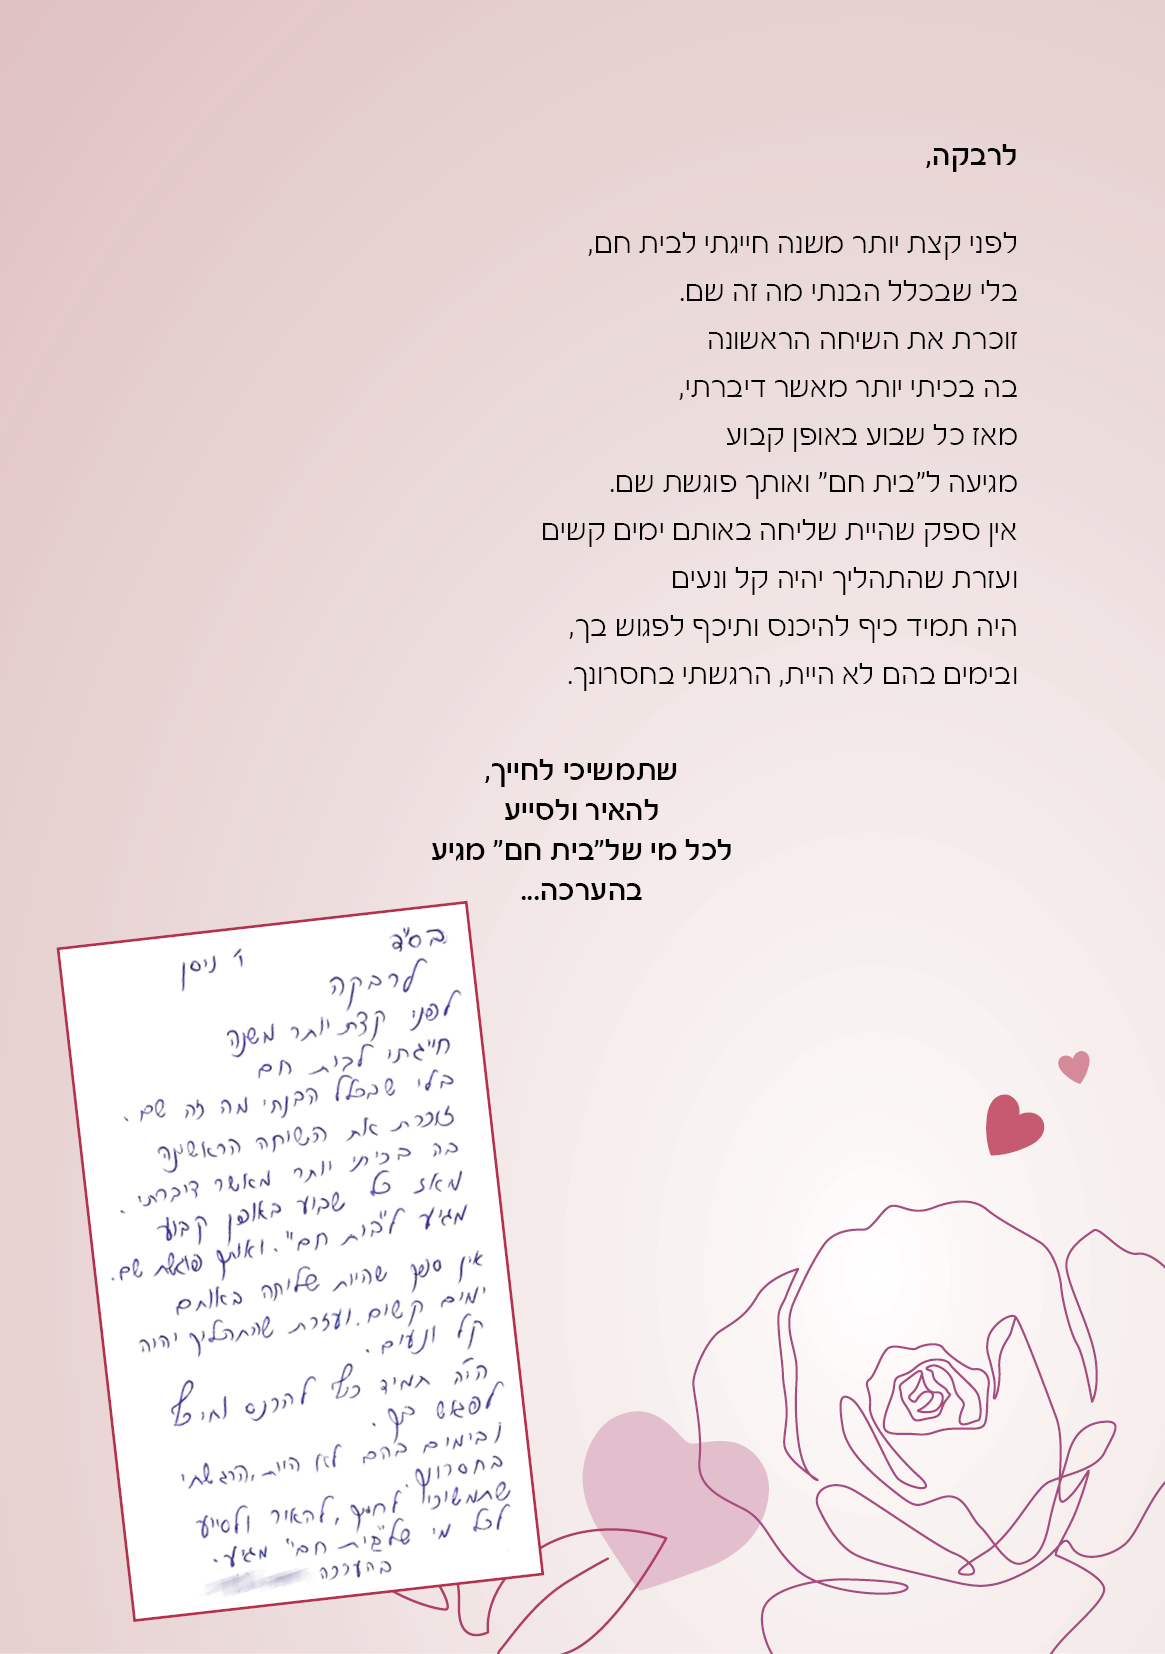 לרבקה,
לפני קצת יותר משנה חייגתי לבית חם,
בלי שבכלל הבנתי מה זה שם.
זוכרת את השיחה הראשונה
בה בכיתי יותר מאשר דיברתי,
מאז כל שבוע באופן קבוע
מגיעה ל"בית חם" ואותך פוגשת שם.
אין ספק שהיית שליחה באותם ימים קשים
ועזרת שהתהליך יהיה קל ונעים
היה תמיד כיף להיכנס ותיכף לפגוש בך,
ובימים בהם לא היית, הרגשתי בחסרונך.
שתמשיכי לחייך,
להאיר ולסייע
לכל מי של"בית חם" מגיע
בהערכה...
בס"ד
ו' ניסן
לרבקה
לפני קצת יותר משנה
חייגתי לבית חם
בלי שבכלל הבנתי מה זה שם.
זוכרת את השיחה הראשונה
בה בכיתי יותר מאשר דיברתי.
מאז כל שבוע באופן קבוע
מגיע ל"בית חם". ואותך פוגשת שם.
אין ספק שהיית שליחה באותם
ימים קשים. ועזרת שהתהליך יהיה
קל ונעים.
היה תמיד כיף להכנס ותיכף
לפגוש בך.
ובימים בהם לא היית, הרגשתי
בחסרונך.
שתמשיכי לחייך, להאיר ולסייע
לכל מי של"בית חם" מגיע.
בהערכה